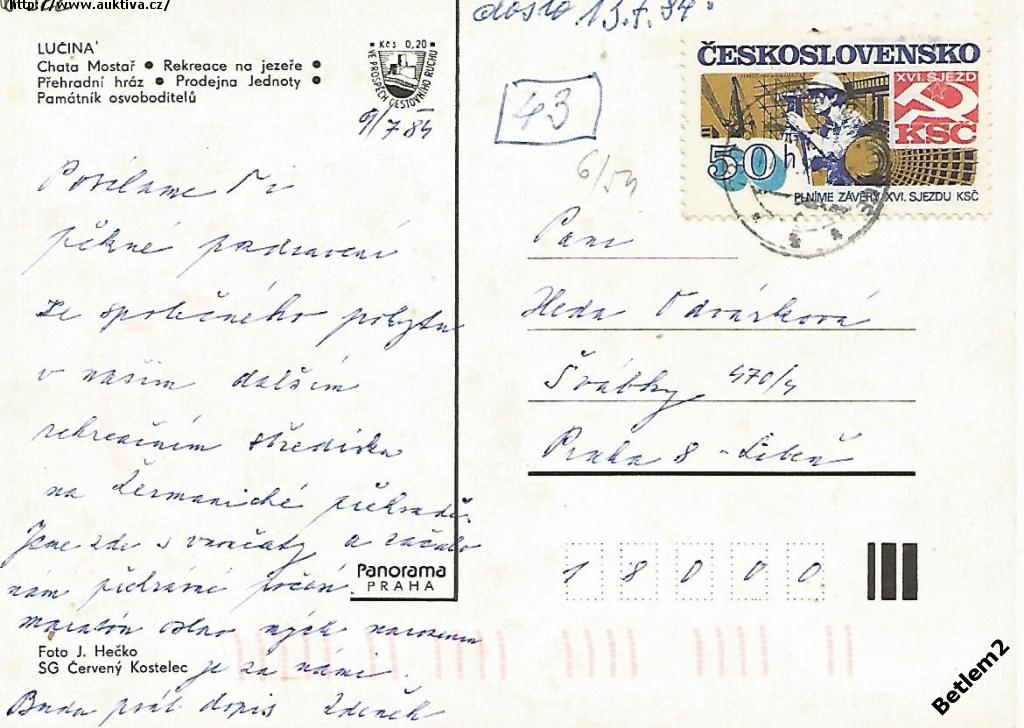 http://www.auktiva.cz/
došlo 13.7.84.
LUČINA
Chata Mostař • Rekreace na jezeře •
Přehradní hráz • Prodejna Jednoty •
Památník osvoboditelů
Kčs 0,20
VE PROSPĚCH CESTOVNÍHO RUCHU
9/7 84
43
6/54
ČESKOSLOVENSKO
XVI. SJEZD
KSČ
50 h
PLNÍME ZÁVĚRY XVI. SJEZDU KSČ
Posíláme Ti
pěkné pozdravení
ze společného pobytu
v našim dalším
rekreačním středisku
na Žermanické přehradě.
Jsme zde s vnoučaty a začalo
nám
maratón narozenin
je za námi.
Budu psát dopis Zdeněk
Paní
Heda Odvárková
Švábky 470/4
Praha 8 - Libeň
18000
Panorama
PRAHA
Foto J. Hečko
SG Červený Kostelec
Betlem2